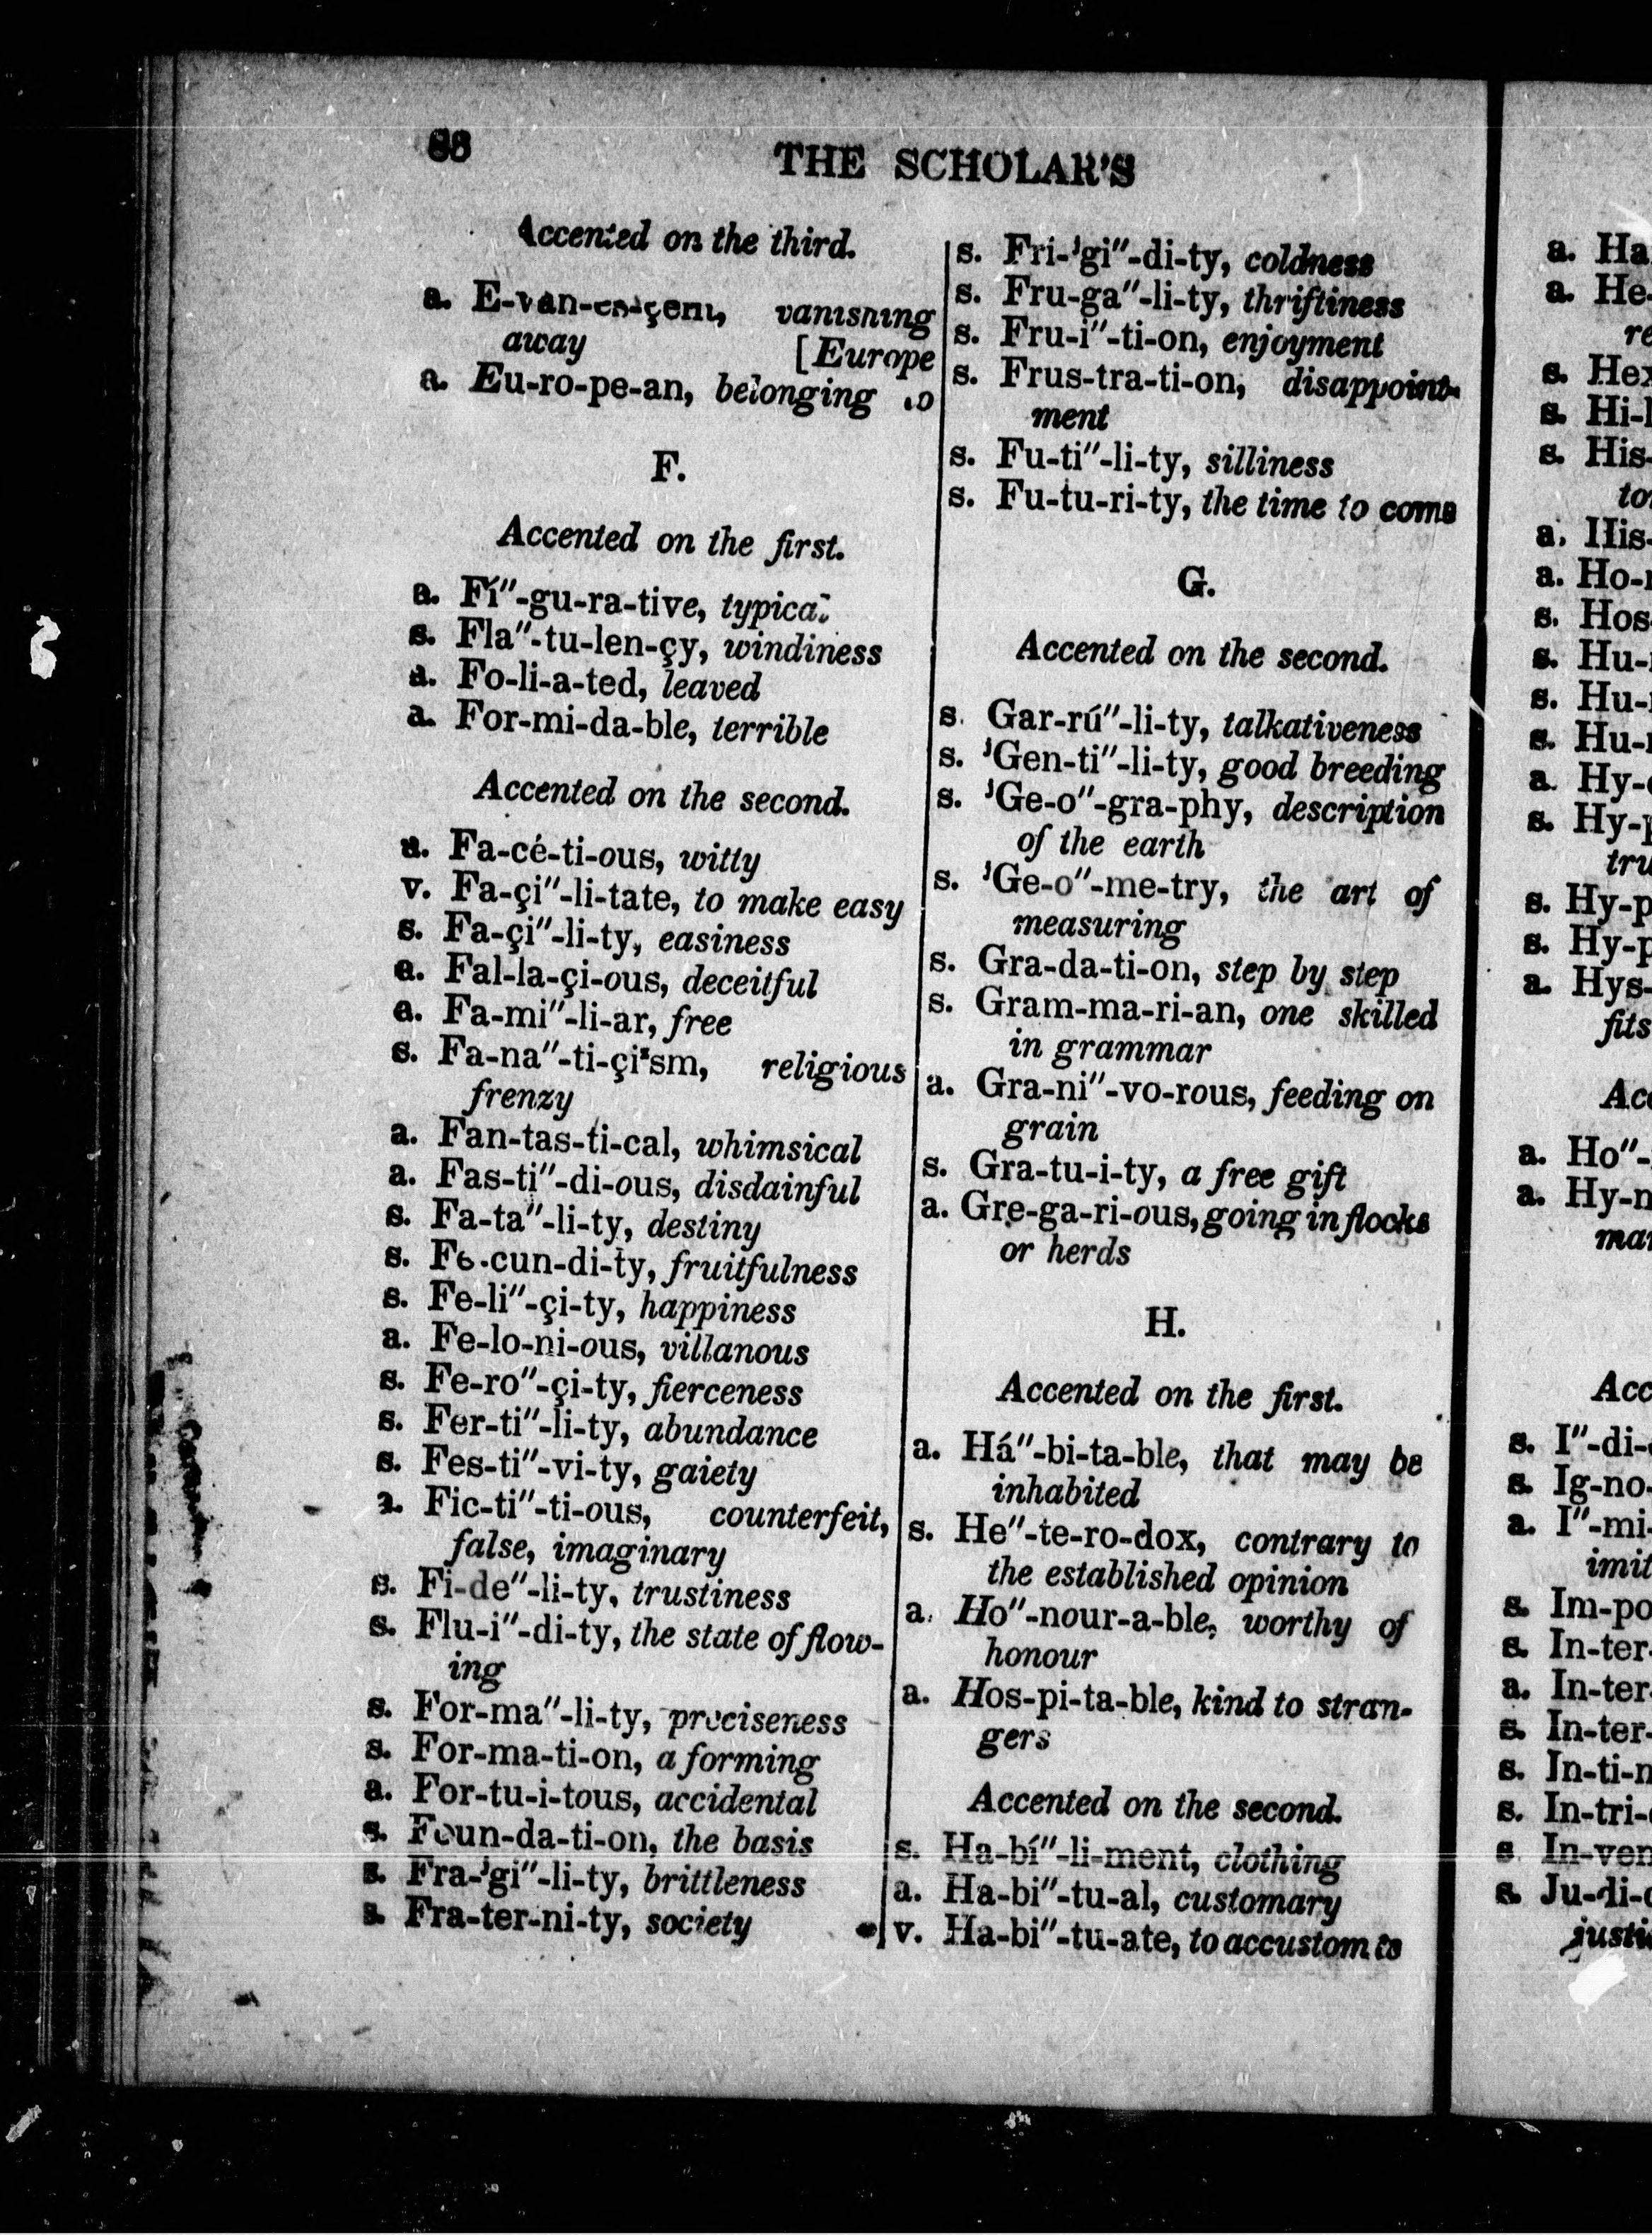 88
THE SCHOLAR'S
Accented on the third.
a. E-van-es-çent, vanishing
away [Europe
a. Eu-ro-pe-an, belonging to
F.
Accented on the first.
a. Fí"-gu-ra-tive, typical
s. Fla"-tu-len-çy, windiness
a. Fo-li-a-ted, leaved
a. For-mi-da-ble, terrible
Accented on the second.
a. Fa-cé-ti-ous, witty
v. Fa-çi"-li-tate, to make easy
s. Fa-çi"-li-ty, easiness
a. Fal-la-çi-ous, deceitful
a. Fa-mi"-li-ar, free
s. Fa-na"-ti-çiᶻsm, religious
frenzy
a. Fan-tas-ti-cal, whimsical
a. Fas-ti"-di-ous, disdainful
s. Fa-ta"-li-ty, destiny
s. Fe-cun-di-ty, fruitfulness
s. Fe-li"-çi-ty, happiness
a. Fe-lo-ni-ous, villanous
s. Fe-ro"-çi-ty, fierceness
s. Fer-ti"-li-ty, abundance
s. Fes-ti"-vi-ty, gaiety
a. Fic-ti"-ti-ous, counterfeit,
false, imaginary
s. Fi-de"-li-ty, trustiness
s. Flu-i"-di-ty, the state of flow-
ing
s. For-ma"-li-ty, preciseness
s. For-ma-ti-on, a forming
a. For-tu-i-tous, accidental
s. Foun-da-ti-on, the basis
s. Fra-ʲgi"-li-ty, brittleness
s. Fra-ter-ni-ty, society
s. Fri-ʲgi"-di-ty, coldness
s. Fru-ga"-li-ty, thriftiness
s. Fru-i"-ti-on, enjoyment
s. Frus-tra-ti-on, disappoint-
ment
s. Fu-ti"-li-ty, silliness
s. Fu-tu-ri-ty, the time to come
G.
Accented on the second.
s. Gar-rú"-li-ty, talkativeness
s. ʲGen-ti"-li-ty, good breeding
s. ʲGe-o"-gra-phy, description
of the earth
s. ʲGe-o"-me-try, the art of
measuring
s. Gra-da-ti-on, step by step
s. Gram-ma-ri-an, one skilled
in grammar
a. Gra-ni"-vo-rous, feeding on
grain
s. Gra-tu-i-ty, a free gift
a. Gre-ga-ri-ous, going in flocks
or herds
H.
Accented on the first.
a. Há"-bi-ta-ble, that may be
inhabited
s. He"-te-ro-dox, contrary to
the established opinion
a. Ho"-nour-a-ble, worthy of
honour
a. Hos-pi-ta-ble, kind to stran-
gers
Accented on the second.
s. Ha-bí"-li-ment, clothing
a. Ha-bi"-tu-al, customary
v. Ha-bi"-tu-ate, to accustom to
a. Ha
a. He-
re
s. Hex
s. Hi-
s. His-
to
a. His-
a. Ho-
s. Hos-
s. Hu-
s. Hu-
s. Hu-
a. Hy-
s. Hy-
tru
s. Hy-p
s. Hy-p
a. Hys-
fits
Ac
a. Ho"-
a. Hy-
ma
Acc
s. I"-di-
s. Ig-no-
a. I"-mi-
imit
s. Im-po
s. In-ter-
a. In-ter-
s. In-ter-
s. In-ti-
s. In-tri-
s. In-ven
s. Ju-di-
justi